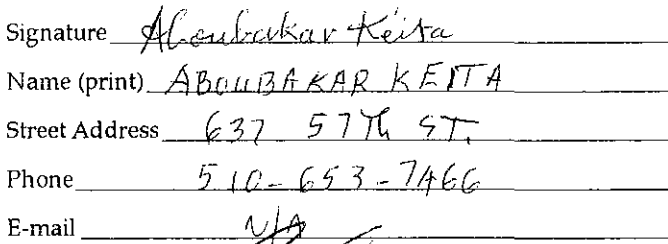 Signature Aboubakar Keita
Name (print) ABOUBAKAR KEITA
Street Address 637 57Th ST.
Phone 510-653-7466
E-mail N/A